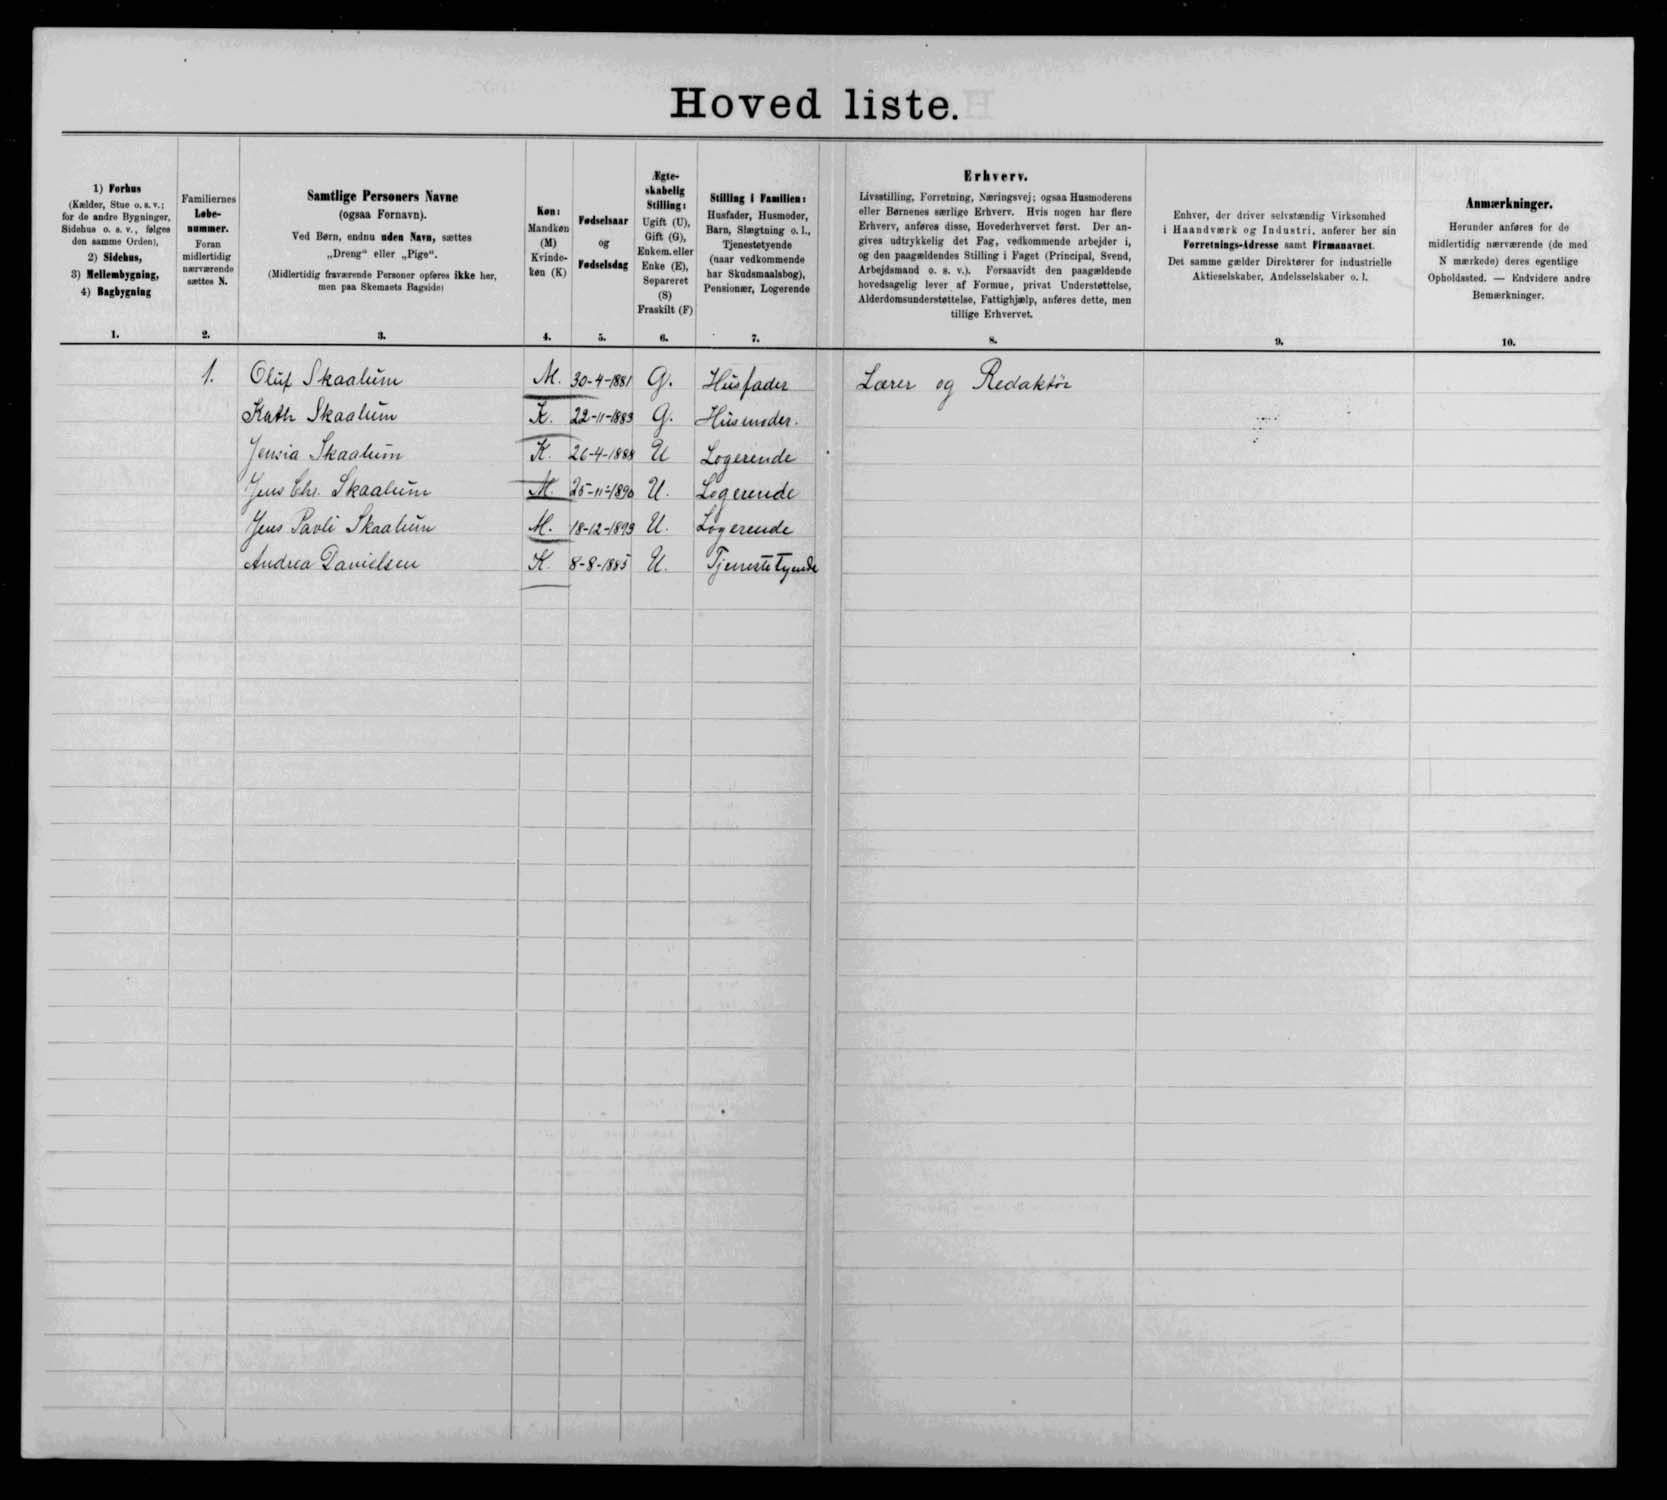 Hoved liste.
1) Forhus
(Kælder, Stue o. s. v.;
for de andre Bygninger,
Sidehus o. s. v., følges
den samme Orden),
2) Sidehus,
3) Mellembygning,
4) Bagbygning
1.
Familiernes
Løbe-
nummer.
Foran
midlertidig
nærværende
sættes N.
2.
Samtlige Personers Navne
(ogsaa Fornavn).
Ved Børn, endnu uden Navn, sættes
„Dreng“ eller „Pige“.
(Midlertidig fraværende Personer opføres ikke her,
men paa Skemaets Bagside)
3.
Køn:
Mandkøn
(M)
Kvinde-
køn (K)
4.
Fødselsaar
og
Fødselsdag
5.
Ægte-
skabelig
Stilling:
Ugift (U),
Gift (G),
Enkem. eller
Enke (E),
Separeret
(S)
Fraskilt (F)
6.
Stilling i Familien:
Husfader, Husmoder,
Barn, Slægtning o. l.,
Tjenestetyende
(naar vedkommende
har Skudsmaalsbog),
Pensionær, Logerende
7.
Erhverv.
Livsstilling, Forretning, Næringsvej; ogsaa Husmoderens
eller Børnenes særlige Erhverv. Hvis nogen har flere
Erhverv, anføres disse, Hovederhvervet først. Der an-
gives udtrykkelig det Fag, vedkommende arbejder i,
og den paagældendes Stilling i Faget (Principal, Svend,
Arbejdsmand o. s. v.). Forsaavidt den paagældende
hovedsagelig lever af Formue, privat Understøttelse,
Alderdomsunderstøttelse, Fattighjælp, anføres dette, men
tillige Erhvervet.
8.
Enhver, der driver selvstændig Virksomhed
i Haandværk og Industri, anfører her sin
Forretnings-Adresse samt Firmanavnet.
Det samme gælder Direktører for industrielle
Aktieselskaber, Andelsselskaber o. l.
9.
Anmærkninger.
Herunder anføres for de
midlertidig nærværende (de med
N mærkede) deres egentlige
Opholdssted. — Endvidere andre
Bemærkninger.
10.
1. Oluf Skaalum M. 30-4-1881 G. Husfader Lærer og Redaktör
Kath Skaalum K. 22-11-1883 G. Husmoder.
Jensia Skaalum K. 26-4-1888 U Logerende
Jens Chr. Skaalum M. 25-11-1890 U. Logerende
Jens Pavli Skaalum M. 18-12-1893 U. Logerende
Andrea Danielsen K. 8-8-1885 U. Tjenestetyende